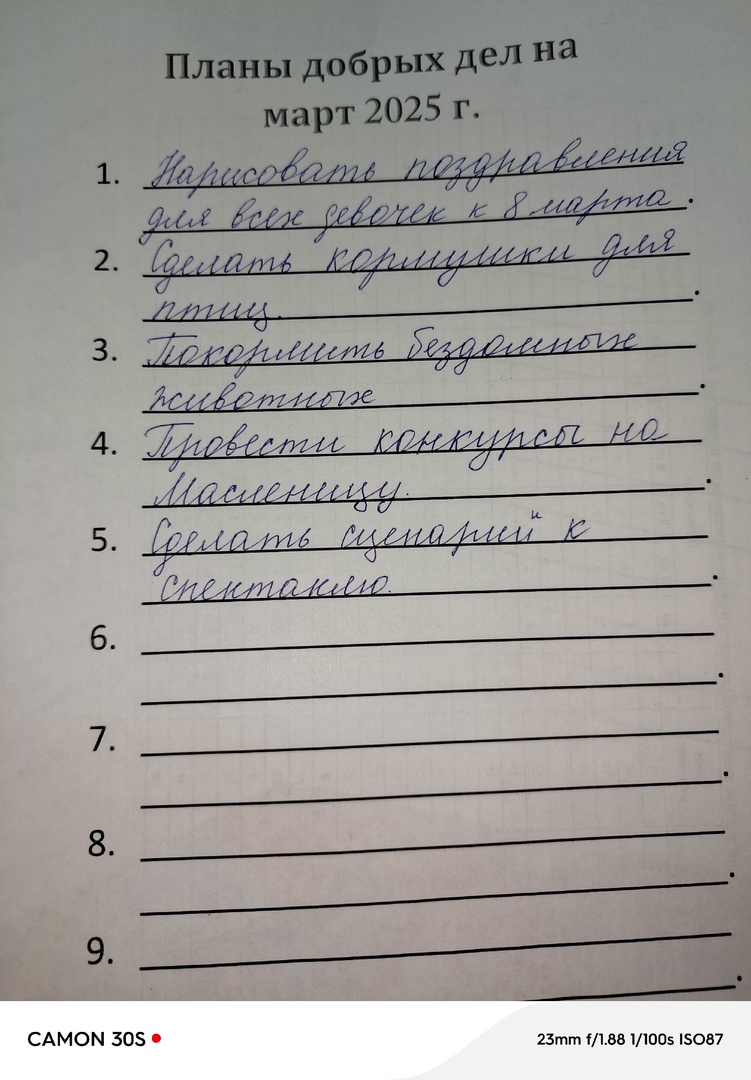 Планы добрых дел на
март 2025 г.
1. Нарисовать поздравления
для всех девочек к 8 марта.
2. Сделать кормушки для
птиц.
3. Покормить бездомных
животных.
4. Провести конкурсы на
Масленицу.
5. Сделать сценарий к
спектаклю.
6.
7.
8.
9.
CAMON 30S
23mm f/1.88 1/100s ISO87